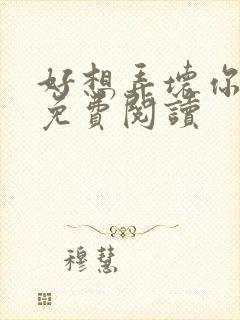 好想弄壞你
免費閱讀
穆慧